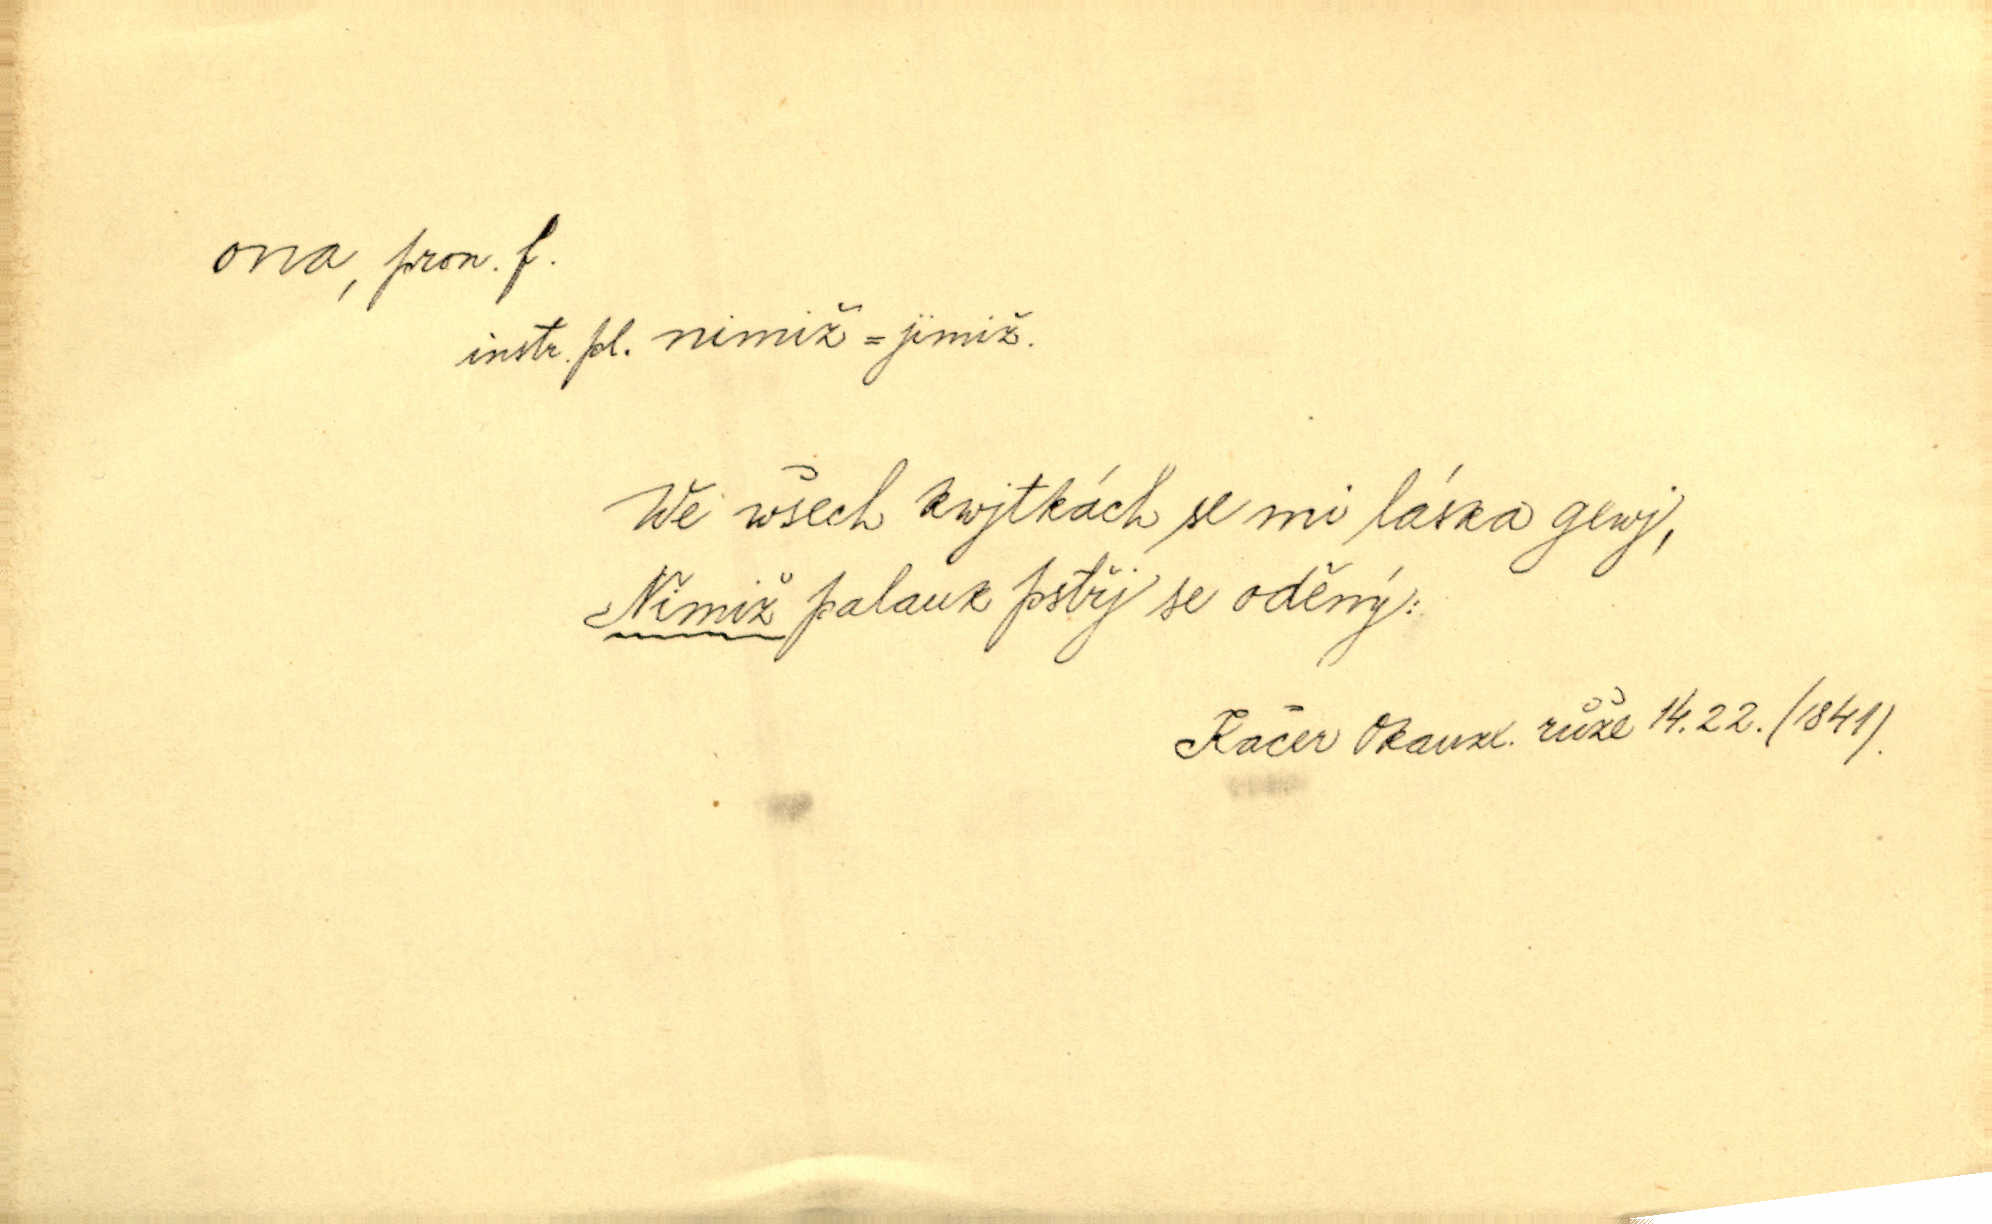 ona, pron. f.
instr. pl. nimiž = jimiž.
We wšech kwjtkách se mi láska gewj,
Nimiž palauk pstřj se oděný:
Kačer Okauzl. růže 14.22. (1841).